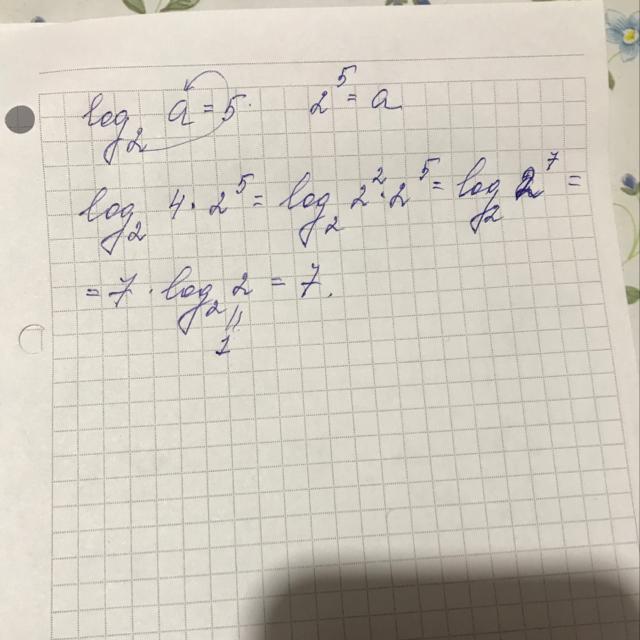 log₂ a = 5. 2⁵ = a
log₂ 4 · 2⁵ = log₂ 2² · 2⁵ = log₂ 2⁷ =
= 7 · log₂ 2 = 7.
||
1